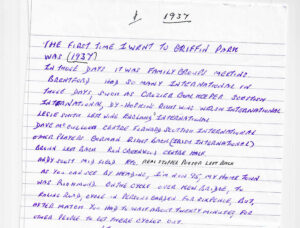 1937
THE FIRST TIME I WENT TO GRIFFIN PARK
WAS (1937)
IN THOSE DAYS IT WAS FAMILY GROUPS MEETING
BRENTFORD HAD SO MANY INTERNATIONAL IN
THOSE DAYS, SUCH AS CROZIER GOAL KEEPER SCOTTISH
INTERNATIONAL, D. HOPKINS RIGHT WING WELSH INTERNATIONAL
LESLIE SMITH LEFT WING ENGLAND INTERNATIONAL
DAVE McCULLOCH CENTRE FORWARD SCOTTISH INTERNATIONAL
OTHER PLAYERS GORMAN RIGHT BACK (IRISH INTERNATIONAL)
BROWN LEFT BACK RON GREENWOOD CENTRE HALF
MID FIELD POYSER LEFT BACK
AS YOU CAN SEE BY HEADING, I'M NOW MY HOME TOWN
WAS RICHMOND. I'D CYCLE OVER KEW BRIDGE, TO
ROAD, CYCLE IN PERSONS GARDEN FOR SIXPENCE, BUT,
AFTER MATCH YOU HAD TO WAIT ABOUT TWENTY MINUTES FOR
OTHER PEOPLE TO GET THERE CYCLES OUT.